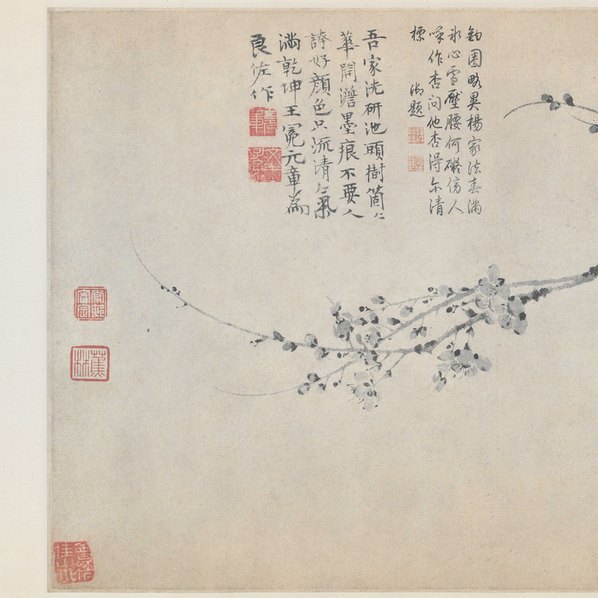 鈎圈略異楊家法春滿
冰心雪壓腰何礙傍人
呼作杏問他杏得尔清
標 御題
吾家洗研池頭樹箇〻
華開澹墨痕不要人
誇好顏色只流清氣
滿乾坤王冕元章為
良佐作
蕉林